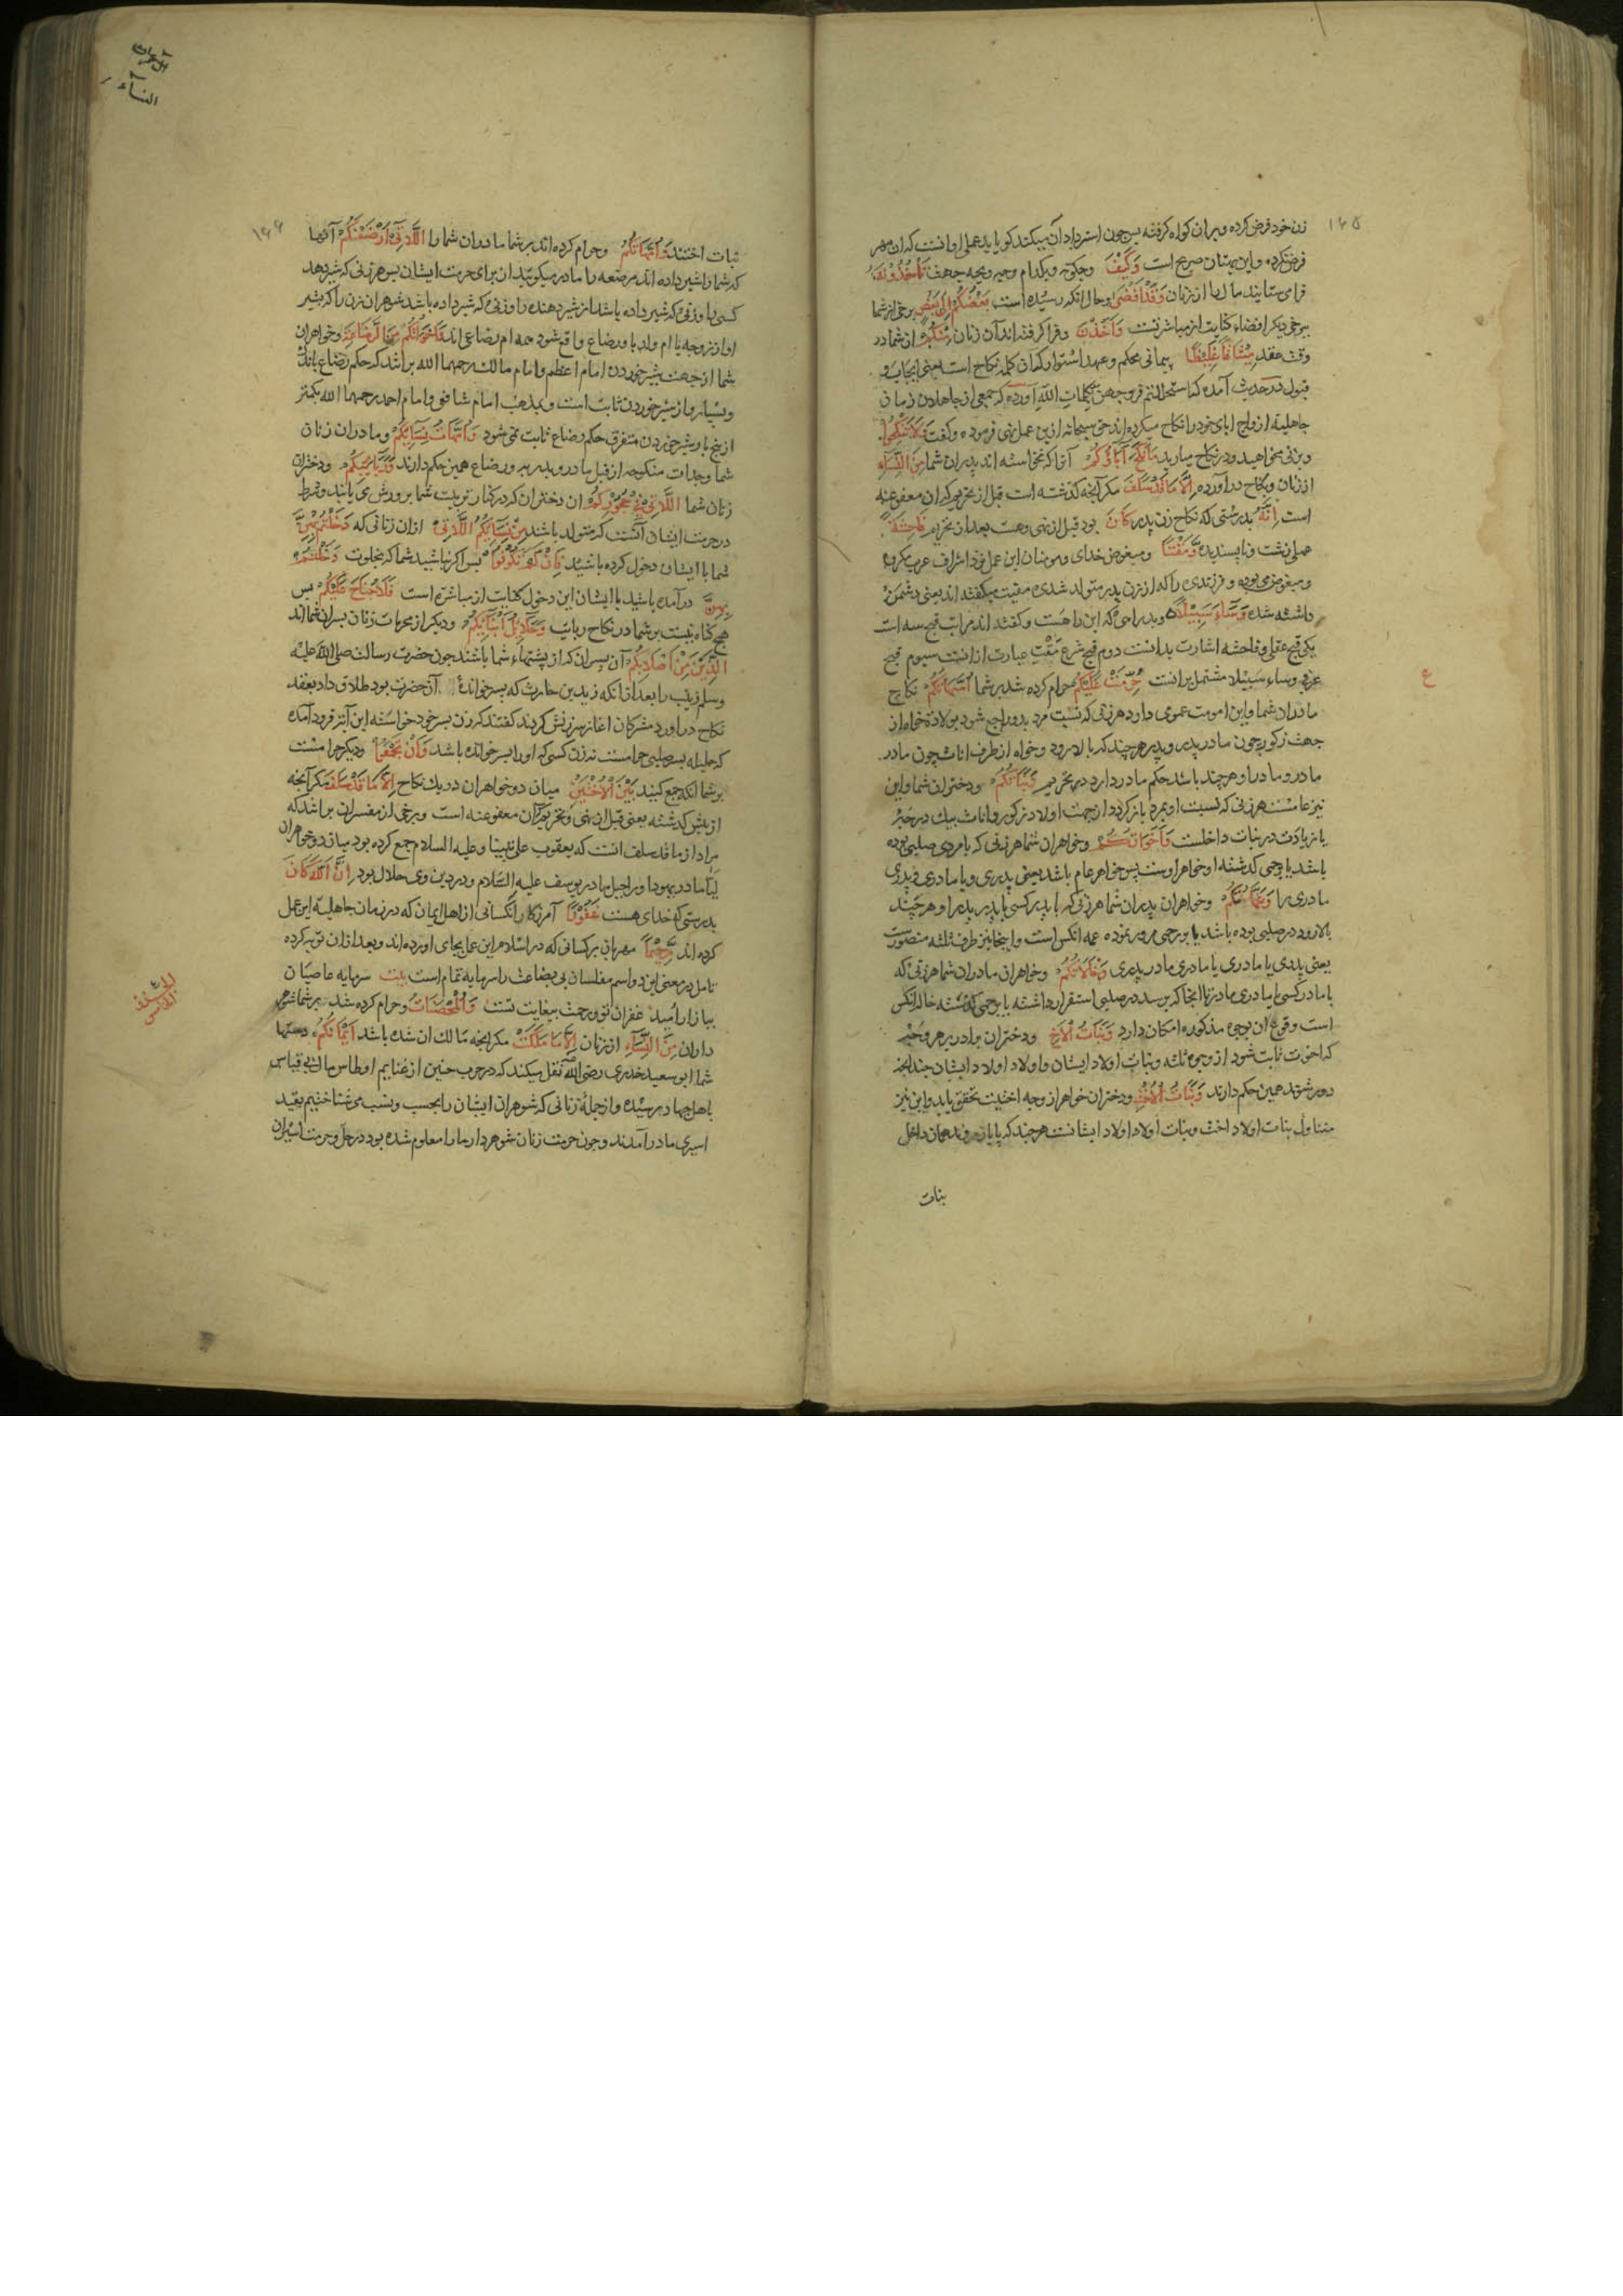 ۱۶۵
زن خود فرض کرده و بران کواه کرفته پس چون استرداد آن میکند کویا بدعملی او انست که ان مهر
فرض نکرده و این بهتان صریح است وَكَيْفَ وچکونه وبکدام وجه وبچه جهت تَأْخُذُونَهُ
فرا می ستانید مال را از زنان وَقَدْ اَفْضَى وحال انکه رسیده است بَعْضُكُمْ اِلَى بَعْضٍ برخی از شما
ببرخی دیکر افضاء کنایت از مباشرتست وَاَخَذْنَ وفرا کرفته اند آن زنان مِنْكُمْ از شما در
وقت عقد مِيْثَاقًا غَلِيظًا پیمانی محکم وعهد استوار که ان کلمه نکاح است یعنی ایجاب و
قبول در حدیث آمده که استحللتم فروجهن بکلمات الله آورده که جمعی از جاهلان زمان
جاهلیة ازواج ابای خود را نکاح میکرده اند حق سبحانه ازین عمل نهی فرموده وکفت وَلَا تَنْكِحُوا
وبزنی مخواهید ودر نکاح میارید مَا نَكَحَ آبَاؤُكُمْ آنرا که بخواسته اند پدران شما مِنَ النِّسَاءِ
از زنان وبنکاح دراورده اِلَّا مَا قَدْ سَلَفَ مکر آنچه کذشته است قبل از تحریم که ان معفو عنه
است اِنَّهُ بدرستی که نکاح زن پدر كَانَ بود قبل از نهی وهست بعد از تحریم فَاحِشَةً
عملی زشت وناپسندیده وَّمَقْتًا ومبغوض خدای ومومنان این عمل نزد اشراف عرب مکروه
ومبغوض می بوده وفرزندی را که از زن پدر متولد شدی مقیت میکفته اند یعنی دشمن
داشته شده وَسَاءَ سَبِيْلًا وبد راهی که این راهست وکفته اند مراتب قبح سه است
یکی قبح عقلی وفاحشه اشارت بدانست دوم قبح شرعی مقت عبارت ازانست سیوم قبح
عرفی وساء سبیلا مشتمل برانست حُرِّمَتْ عَلَيْكُمْ حرام کرده شد بر شما اُمَّهَاتُكُمْ نکاح
مادران شما واین امومت عمومی دارد هر زنی که نسبت مرد بدو راجع شود بولادة خواه از
جهت ذکور چون مادر پدر وپدر هر چند که بالا رود وخواه از طرف اناث چون مادر
مادر ومادر او هر چند باشد حکم مادر دارد در تحریم وَبَنَاتُكُمْ ودختران شما واین
نیز عامست هر زنی که نسبت او بمرد باز کردد از جهت اولاد ذکور واناث بیک درجه
یا زیادت در بنات داخلست وَاَخَوَاتُكُمْ وخواهران شما هر زنی که با مردی صلبی بوده
باشد یا رحمی کذشته او خواهر اوست پس خواهر عام باشد یعنی پدری ویا مادری وپدری
مادری را وَعَمَّاتُكُمْ وخواهران پدران شما هر زنی که با پدر کسی یا پدر پدر او هر چند
بالا رود در صلبی بوده باشد یا بر رحمی مرور نموده عمه انکس است واینجا نیز طرف ثلثه متصورست
یعنی پدری یا مادری یا مادری پدری وَخَالَاتُكُمْ وخواهران مادران شما هر زنی که
با مادر کسی یا مادر مادر تا انجا که برسد در صلبی استقرار داشته یا برحمی کذشته خاله انکس
است وقوع ان بوجوه مذکوره امکان دارد وَبَنَاتُ الْاَخِ ودختران برادر بهر وجهی
که اخوت ثابت شود از وجوه ثلثه وبنات اولاد ایشان واولاد اولاد ایشان چندانکه
دور شوند همین حکم دارند وَبَنَاتُ الْاُخْتِ ودختران خواهر از وجه اختیت تحقق یابد واین نیز
متناول بنات اولاد اخت وبنات اولاد اولاد ایشانست هر چند که پایان روند همان داخل
بنات
ع
آل عمران
النسآء
۱۶۶
بنات اختند وَاُمَّهَاتُكُمْ وحرام کرده اند بر شما مادران شما را اللَّاتِي اَرْضَعْنَكُمْ آنها
که شما را شیر داده اند مرضعه را مادر میکویند از برای حرمت ایشان پس هر زنی که شیر دهد
کسی را وزنی که شیر داده باشد از شیر دهنده را وزنی که شیر داده باشد شوهران زن را که بشیر
او از زوجه یا ام ولد با رضاع واقع شود همه ام رضاعی اند وَاَخَوَاتُكُمْ مِنَ الرَّضَاعَةِ وخواهران
شما از جهت شیر خوردن امام اعظم وامام مالک رحمهما الله برانند که حکم رضاع باندک
وبسیار از شیر خوردن ثابت است وبمذهب امام شافعی وامام احمد رحمهما الله بکمتر
از پنج بار شیر خوردن متفرق حکم رضاع ثابت نمی شود وَاُمَّهَاتُ نِسَائِكُمْ ومادران زنان
شما وجدات منکوحه از قبل مادر وپدر بر رضاع همین حکم دارند وَرَبَائِبُكُمْ ودختران
زنان شما اللَّاتِي فِي حُجُورِكُمْ ان دختران که در کنار تربیت شما پرورش می یابند وشرط
در حرمت ایشان آنست که متولد باشند مِنْ نِسَائِكُمُ اللَّاتِي ازان زنانی که دَخَلْتُمْ بِهِنَّ
شما با ایشان دخول کرده باشید فَاِنْ لَمْ تَكُونُوا پس اکر نباشید شما که بخلوت دَخَلْتُمْ
بِهِنَّ درآمده باشید با ایشان این دخول کنایت از مباشرة است فَلَا جُنَاحَ عَلَيْكُمْ پس
هیچ کناه نیست بر شما در نکاح ربایب وَحَلَائِلُ اَبْنَائِكُمُ ودیکر از محرمات زنان پسران شما اند
الَّذِيْنَ مِنْ اَصْلَابِكُمْ آن پسران که از پشتهاء شما باشند چون حضرت رسالت صلی الله علیه
وسلم زینب را بعد ازانکه زید بن حارث که پسر خوانده آن حضرت بود طلاق داد بعقد
نکاح دراورد مشرکان اغاز سرزنش کردند کفتند که زن پسر خود خواسته این آیة فرود آمده
که حلیله پسر صلبی حرامست نه زن کسی که او را پسر خوانده باشد وَاَنْ تَجْمَعُوا ودیکر حرامست
بر شما انکه جمع کنید بَيْنَ الْاُخْتَيْنِ میان دو خواهران در یک نکاح اِلَّا مَا قَدْ سَلَفَ مکر آنچه
از پیش کذشته یعنی قبل از نهی وتحریم که آن معفو عنه است وبرخی از مفسران برانند که
مراد از ما قد سلف انست که یعقوب علی نبینا وعلیه السلام جمع کرده بود میان دو خواهران
لیّا مادر یهودا وراحیل مادر یوسف علیه السّلام ودر دین وی حلال بود اِنَّ اللّٰهَ كَانَ
بدرستی که خدای هست غَفُوْرًا آمرزکار انکسانی از اهل ایمان که در زمان جاهلیة این عمل
کرده اند رَّحِيْمًا مهربان بر کسانی که در اسلام این عمل بجای اورده اند وبعد ازان توبه کرده
تامل در معنی این دو اسم مفلسان بی بضاعت را سرمایه تمام است بیت سرمایه عاصیان
ببازار امید غفران تو ورحمت بیغایت تست وَالْمُحْصَنَاتُ وحرام کرده شد بر شما شوهر
داران مِنَ النِّسَاءِ از زنان اِلَّا مَا مَلَكَتْ مکر انچه مالک ان شده باشد اَيْمَانُكُمْ دستهاء
شما ابو سعید خدری رضی الله عنه نقل میکند که در حرب حنین از غنایم اوطاس مال بی قیاس
باهل جهاد رسیده واز جمله زنانی که شوهران ایشان را بحسب ونسب می شناختیم بقید
اسیری ما درآمدند وچون حرمت زنان شوهردار ما را معلوم شده بود در حل وحرمت اسیران